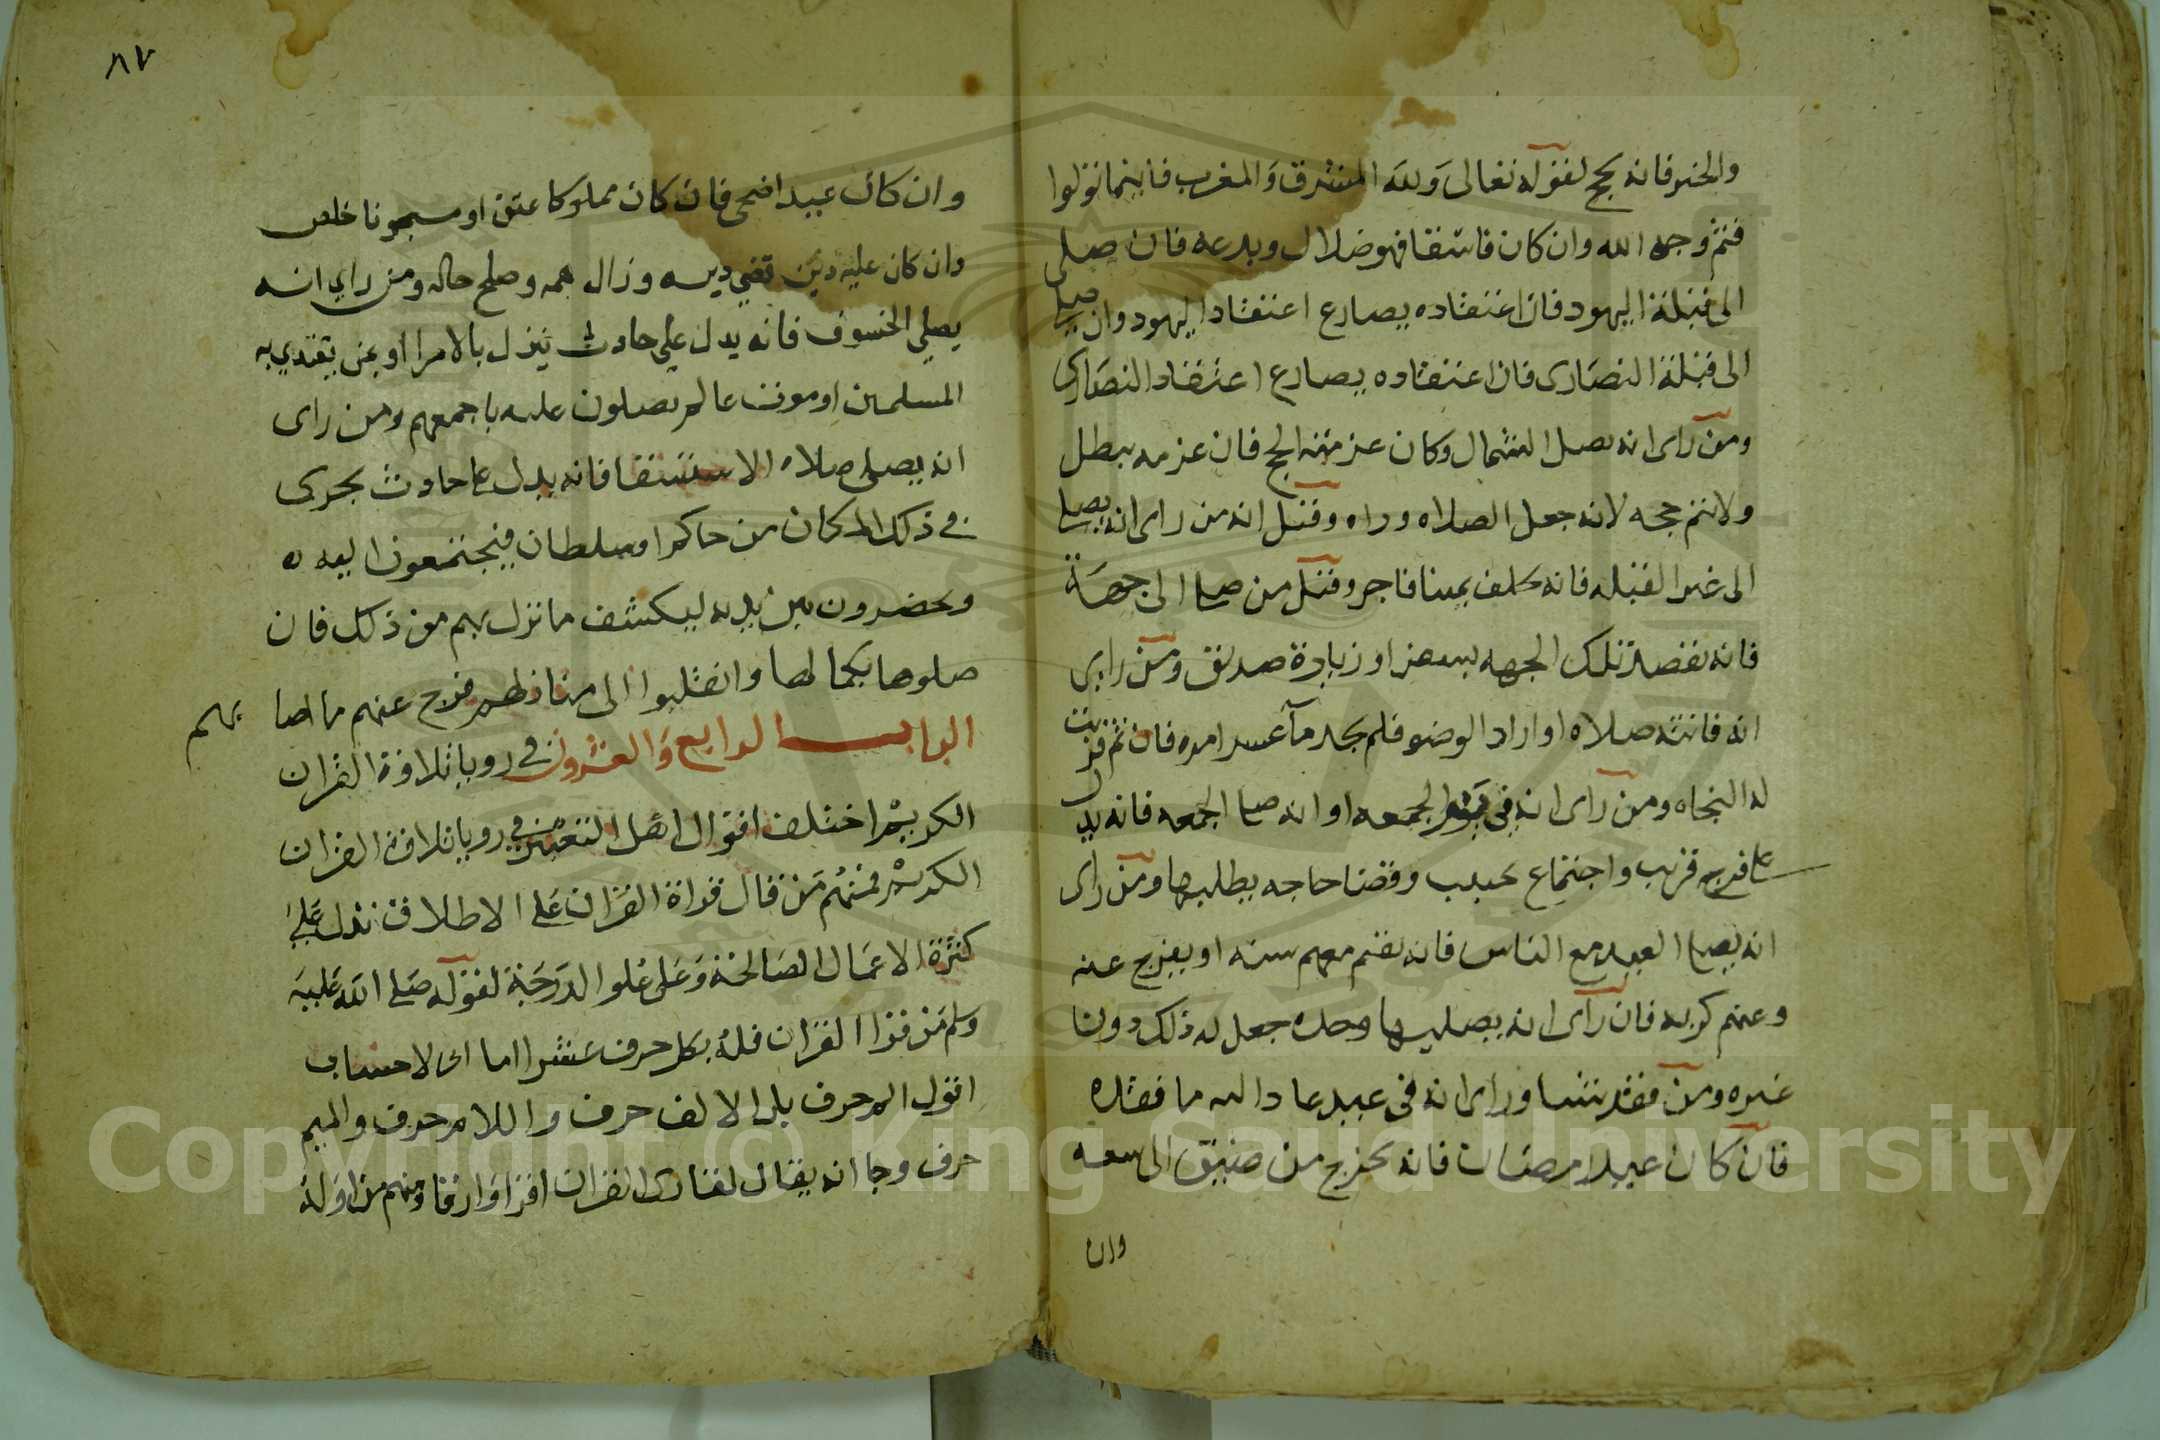 والخير فانه يحج لقوله تعالى ولله المشرق والمغرب فاينما تولوا
فثم وجه الله وان كان فاسقا فهو ضلال وبدعه فان صلى
الى قبلة اليهود فان اعتقاده يضارع اعتقاد اليهود وان صلى
الى قبلة النصارى فان اعتقاده يضارع اعتقاد النصارى
ومن راى انه يصلي الشمال وكان عزمته الحج فان عزمه يبطل
ولا يتم حجه لانه جعل الصلاه وراه وقيل انه من راى انه يصلي
الى غير القبله فانه يحلف يمينا فاجر وقيل من صلى الى جهة
فانه يقصد تلك الجهه بسفر او زيارة صديق ومن راى
انه فاتته صلاه او اراد الوضو فلم يجد مآ عسر امره فان تم قربت
له النجاه ومن راى انه في يوم الجمعه او انه صلى الجمعه فانه يدل
على فرج قريب واجتماع بحبيب وقضا حاجه يطلبها ومن راى
انه يصلي العيد مع الناس فانه يغنم معهم سنه او يفرج عنه
وعنهم كربه فان راى انه يصليها وحده جعل له ذلك دونا
غيره ومن فقد شيا وراى انه في عيد عاد اليه ما فقده
فان كان عيد رمضان فانه يخرج من ضيق الى سعه
وان
٨٧
وان كان عيد اضحى فان كان مملوكا عتق او مسجونا خلص
وان كان عليه دين قضي دينه وزال همه وصلح حاله ومن راي انه
يصلي الخسوف فانه يدل علي حادث ينزل بالامرا او بمن يقتدي به
المسلمين او موت عالم يصلون عليه باجمعهم ومن راى
انه يصلي صلاه الاستسقا فانه يدل على حادث يجرى
في ذلك المكان من حاكم او سلطان فيجتمعون اليه
ويحضرون بين يديه ليكشف ما نزل بهم من ذلك فان
صلوها بكمالها وانقلبوا الى منازلهم فرج عنهم ما اصا بهم
الباب الرابع والعشرون في رويا تلاوة القران
الكريم اختلف اقوال اهل التعبير في رويا تلاوة القران
الكريم فمنهم من قال قراة القران على الاطلاق تدل علي
كثرة الاعمال الصالحة وعلى علو الدرجة لقوله صلى الله عليه
وسلم من قرا القران فله بكل حرف عشرا اما اني لا احساب
اقول الم حرف بل الالف حرف واللام حرف والميم
حرف وجا انه يقال لقارى القران اقرا وارقا ومنهم من اوله